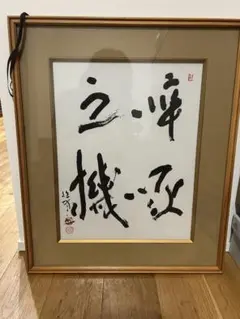 啐啄
之機